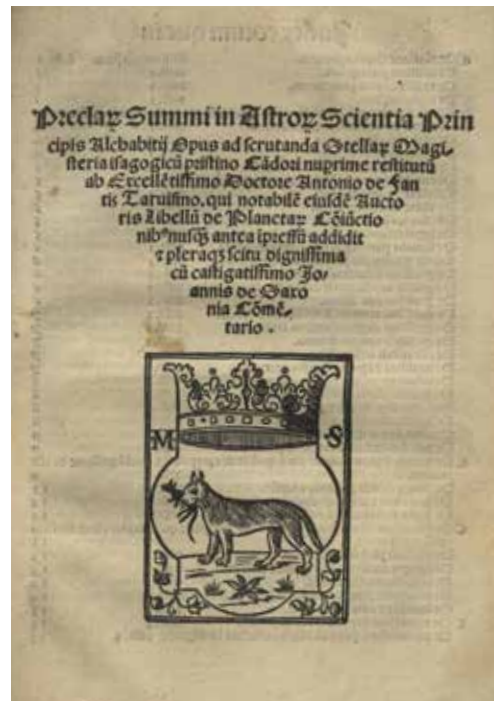 Preclaꝝ Summi in Astroꝝ Scientia Prin
cipis Alchabitij Opus ad scrutanda Stellaꝝ Magi⸗
steria isagogicū pristino Cādori nuꝑrime restitutū
ab Excellētissimo Doctore Antonio de Fan
tis Taruisino. qui notabilē eiusdē Aucto
ris Libellū de Planetaꝝ Cōiūctio
nibꝰ nusꝗ̃ antea īpressū addidit
⁊ pleraqꝫ scitu dignissima
cū castigatissimo Jo/
annis de Saxo
nia Cōmē⸗
tario .
M S